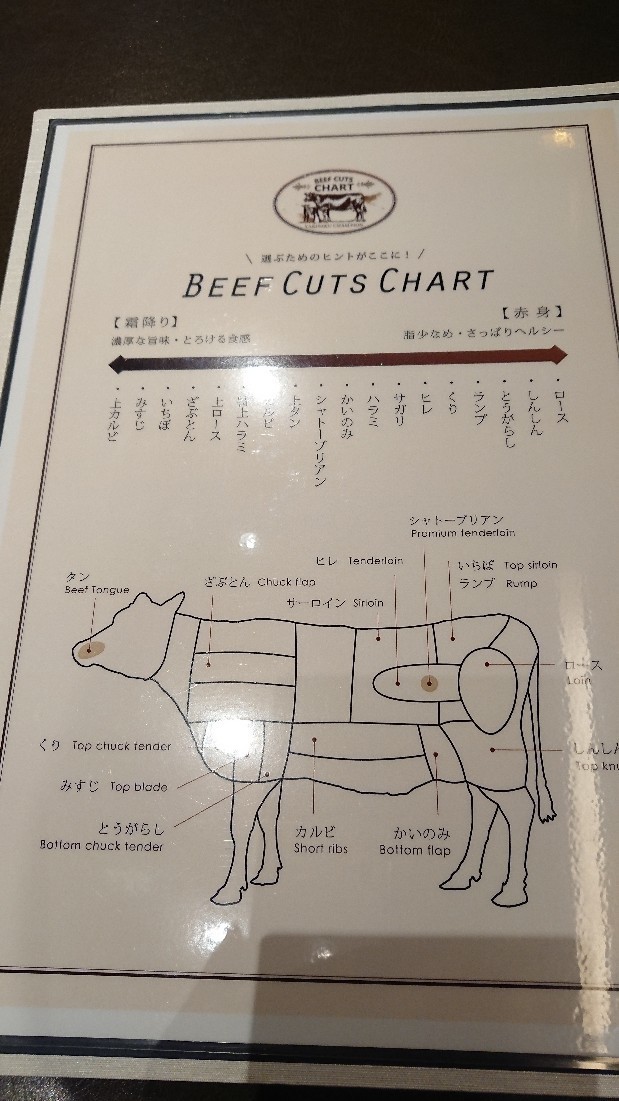 BEEF CUTS
CHART
\ 選ぶためのヒントがここに! /
BEEF CUTS CHART
【霜降り】
濃厚な旨味・とろける食感
【赤身】
脂少なめ・さっぱりヘルシー
・上カルビ
・みすじ
・いちぼ
・ざぶとん
・上ロース
上ハラミ
カルビ
・上タン
・シャトーブリアン
・かいのみ
・ハラミ
・サガリ
・ヒレ
・くり
・ランプ
・とうがらし
・しんしん
・ロース
シャトーブリアン
Premium tenderloin
ヒレ Tenderloin
いちぼ Top sirloin
ランプ Rump
タン
Beef Tongue
ざぶとん Chuck flap
サーロイン Sirloin
ロース
Loin
くり Top chuck tender
しんしん
Top knu
みすじ Top blade
とうがらし
Bottom chuck tender
カルビ
Short ribs
かいのみ
Bottom flap